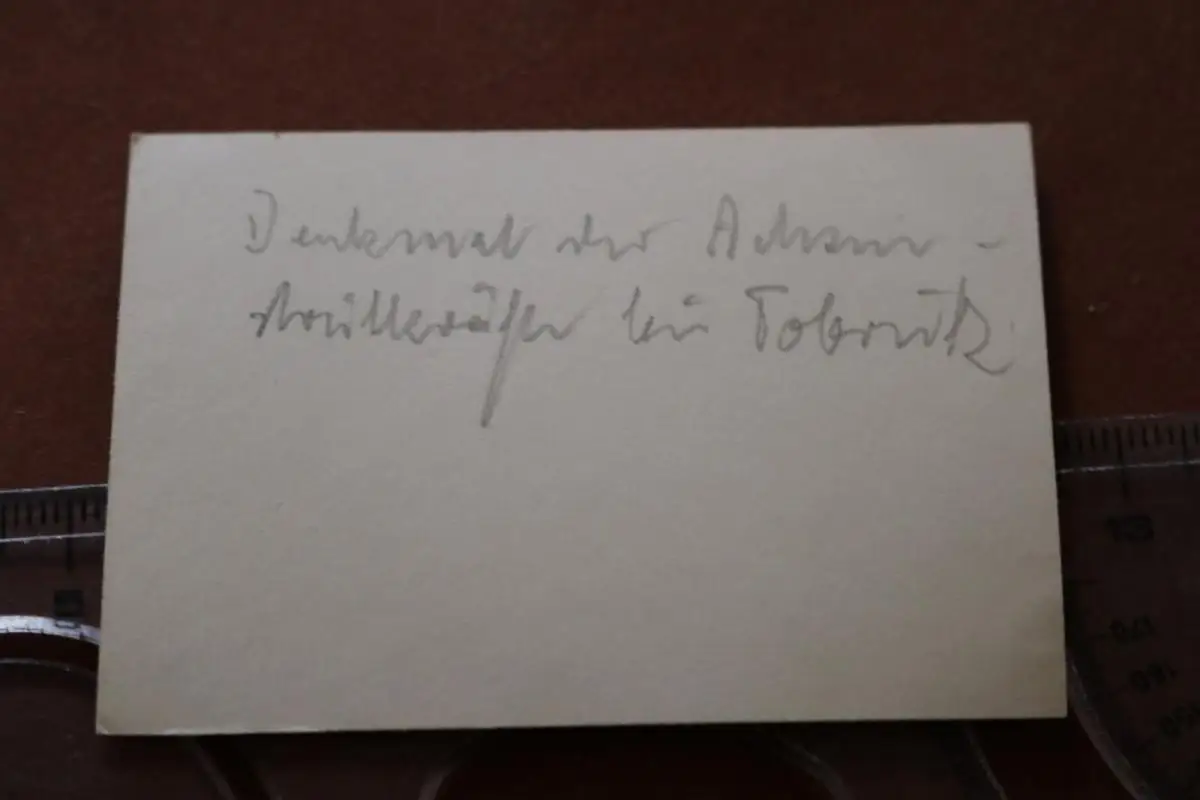 Denkmal der Achsen-
streitkräfte bei Tobruk.
13